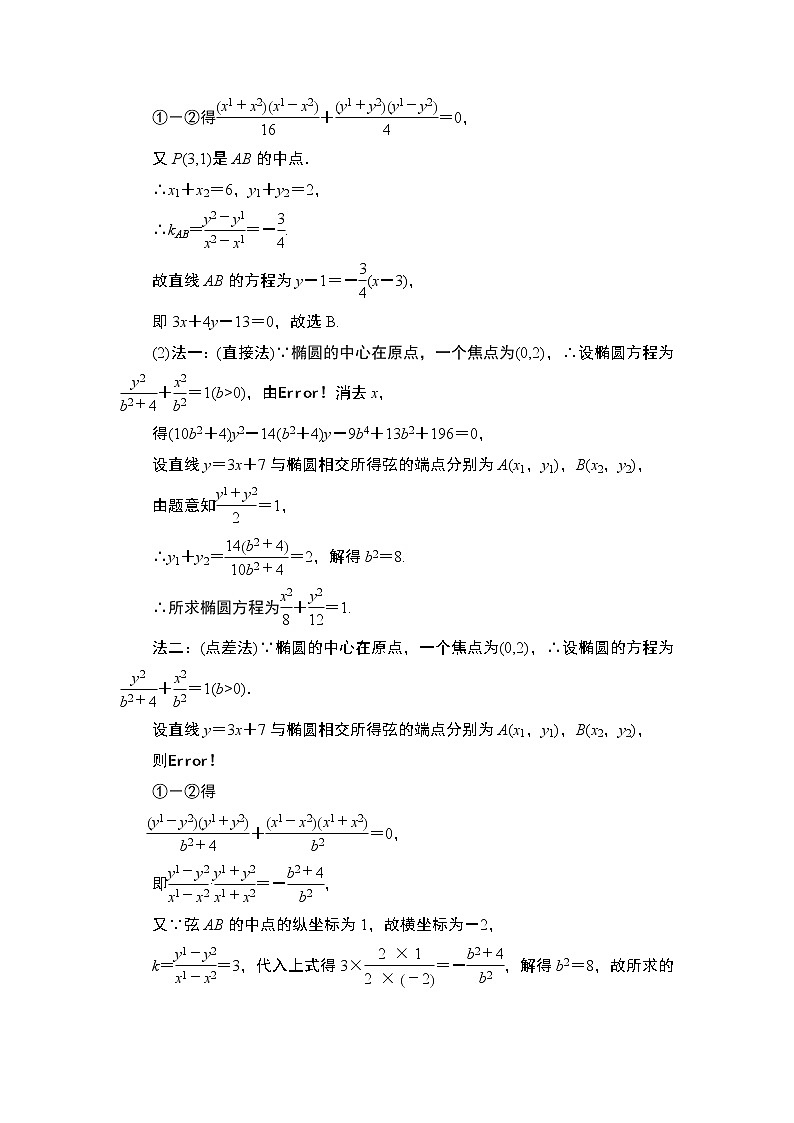 ①－②得(x1＋x2)(x1－x2)/16＋(y1＋y2)(y1－y2)/4＝0，
又 P(3,1)是 AB 的中点．
∴x₁＋x₂＝6，y₁＋y₂＝2，
∴k_AB＝(y2－y1)/(x2－x1)＝－3/4.
故直线 AB 的方程为 y－1＝－3/4(x－3)，
即 3x＋4y－13＝0，故选 B.
(2)法一：(直接法)∵椭圆的中心在原点，一个焦点为(0,2)，∴设椭圆方程为
y2/(b2＋4)＋x2/b2＝1(b>0)，由Error！消去 x，
得(10b²＋4)y²－14(b²＋4)y－9b⁴＋13b²＋196＝0，
设直线 y＝3x＋7 与椭圆相交所得弦的端点分别为 A(x₁，y₁)，B(x₂，y₂)，
由题意知(y1＋y2)/2＝1，
∴y₁＋y₂＝14(b2＋4)/(10b2＋4)＝2，解得 b²＝8.
∴所求椭圆方程为x2/8＋y2/12＝1.
法二：(点差法)∵椭圆的中心在原点，一个焦点为(0,2)，∴设椭圆的方程为
y2/(b2＋4)＋x2/b2＝1(b>0)．
设直线 y＝3x＋7 与椭圆相交所得弦的端点分别为 A(x₁，y₁)，B(x₂，y₂)，
则Error！
①－②得
(y1－y2)(y1＋y2)/(b2＋4)＋(x1－x2)(x1＋x2)/b2＝0，
即(y1－y2)/(x1－x2)·(y1＋y2)/(x1＋x2)＝－(b2＋4)/b2，
又∵弦 AB 的中点的纵坐标为 1，故横坐标为－2，
k＝(y1－y2)/(x1－x2)＝3，代入上式得 3×(2 × 1)/(2 × (－2))＝－(b2＋4)/b2，解得 b²＝8，故所求的